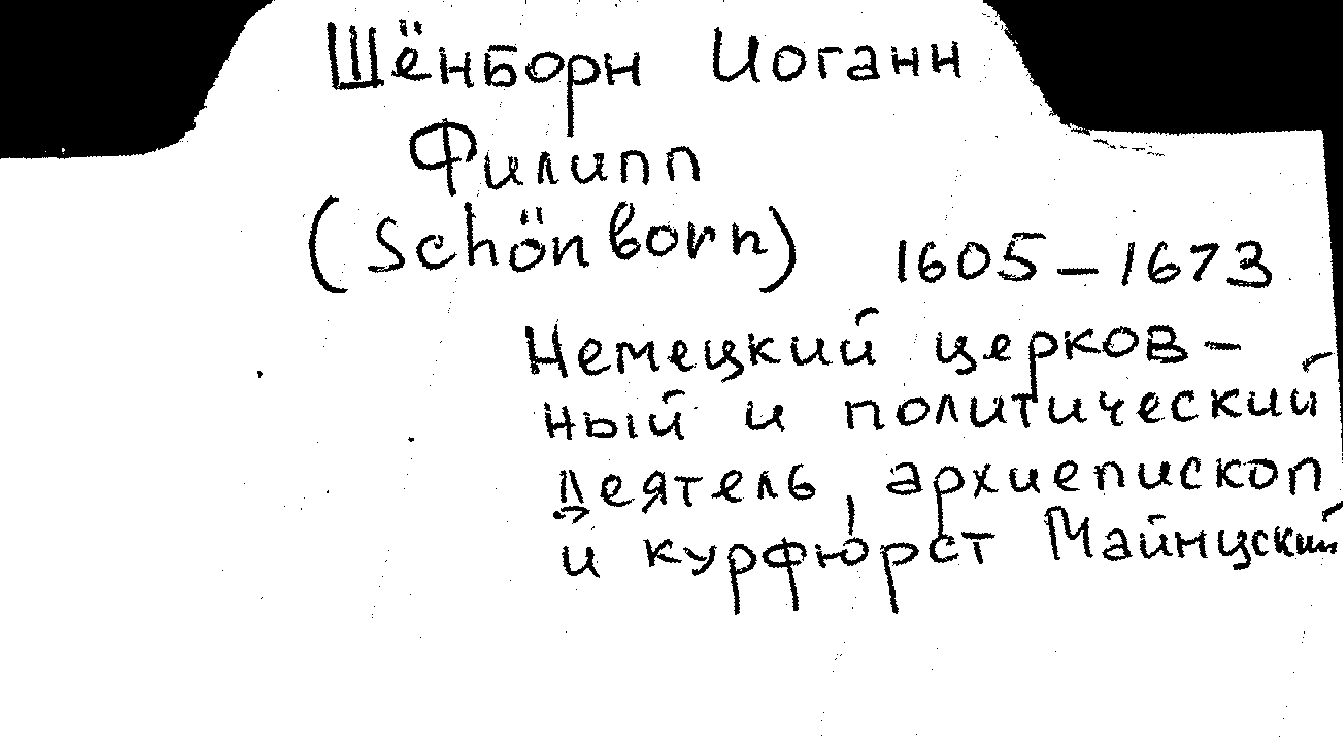 Шёнборн Иоганн
Филипп
(Schönborn) 1605–1673
Немецкий церков–
ный и политический
деятель, архиепископ
и курфюрст Майнцский